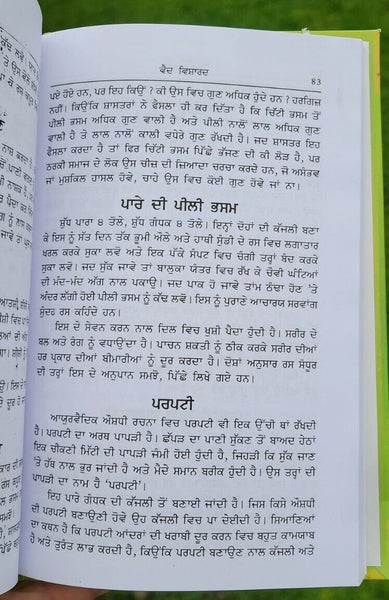 ਵੈਦ ਵਿਸ਼ਾਰਦ
83
ਪਏ ਹੋਏ ਹਨ, ਪਰ ਇਹ ਕਿਉਂ ? ਕੀ ਉਸ ਵਿਚ ਗੁਣ ਅਧਿਕ ਹੁੰਦੇ ਹਨ ? ਹਰਗਿਜ਼
ਨਹੀਂ। ਕਿਉਂਕਿ ਸ਼ਾਸਤਰਾਂ ਨੇ ਫੈਸਲਾ ਹੀ ਕਰ ਦਿੱਤਾ ਹੈ ਕਿ ਚਿੱਟੀ ਭਸਮ ਤੋਂ
ਪੀਲੀ ਭਸਮ ਅਧਿਕ ਗੁਣ ਵਾਲੀ ਹੈ ਅਤੇ ਪੀਲੀ ਨਾਲੋਂ ਲਾਲ ਅਧਿਕ ਗੁਣ
ਵਾਲੀ ਹੈ ਤੇ ਲਾਲ ਨਾਲੋਂ ਕਾਲੀ ਵਧੇਰੇ ਗੁਣ ਰੱਖਦੀ ਹੈ। ਜਦ ਸ਼ਾਸਤਰ ਇਹ
ਫੈਸਲਾ ਦੱਸਦਾ ਹੈ ਤਾਂ ਫਿਰ ਚਿੱਟੀ ਭਸਮ ਪਿੱਛੇ ਭੱਜਣ ਦੀ ਕੀ ਲੋੜ ਹੈ, ਪਰ
ਠਰਕੀ ਸਮਾਜ ਦੇ ਲੋਕ ਉਸ ਚੀਜ਼ ਦੀ ਜ਼ਿਆਦਾ ਚਰਚਾ ਕਰਦੇ ਹਨ, ਜੋ ਅਸੰਭਵ
ਜਾਂ ਮੁਸ਼ਕਿਲ ਹਾਸਲ ਹੋਵੇ, ਚਾਹੇ ਉਸ ਵਿਚ ਕੋਈ ਗੁਣ ਹੋਵੇ ਜਾਂ ਨਾ।
ਪਾਰੇ ਦੀ ਪੀਲੀ ਭਸਮ
ਸ਼ੁੱਧ ਪਾਰਾ 8 ਤੋਲੇ, ਸ਼ੁੱਧ ਗੰਧਕ 8 ਤੋਲੇ। ਇਨ੍ਹਾਂ ਦੋਹਾਂ ਦੀ ਕੱਜਲੀ ਬਣਾ
ਕੇ ਇਸ ਨੂੰ ਸੱਤ ਦਿਨ ਤੱਕ ਭੂਮੀ ਔਲੇ ਅਤੇ ਹਾਥੀ ਸੁੰਡੀ ਦੇ ਰਸ ਵਿਚ ਲਗਾਤਾਰ
ਖਰਲ ਕਰਕੇ ਸੁਕਾ ਲਵੋ ਅਤੇ ਇਕ ਪੱਕੇ ਸੰਪਟ ਵਿਚ ਚੰਗੀ ਤਰ੍ਹਾਂ ਬੰਦ ਕਰਕੇ
ਸੁਕਾ ਲਵੋ। ਜਦ ਸੁੱਕ ਜਾਵੇ ਤਾਂ ਬਾਲੁਕਾ ਯੰਤਰ ਵਿਚ ਰੱਖ ਕੇ ਚੌਵੀ ਘੰਟਿਆਂ
ਦੀ ਮੰਦ-ਮੰਦ ਅੱਗ ਨਾਲ ਪਕਾਵੋ। ਜਦ ਪਾਕ ਹੋ ਜਾਵੇ ਤਾਂ ਠੰਢਾ ਹੋਣ 'ਤੇ
ਅੰਦਰ ਲੱਗੀ ਹੋਈ ਪੀਲੀ ਭਸਮ ਨੂੰ ਕੱਢ ਲਵੋ। ਇਸ ਨੂੰ ਪੁਰਾਣੇ ਆਚਾਰਯ ਸਰਵਾਂਗ
ਸੁੰਦਰ ਰਸ ਕਹਿੰਦੇ ਹਨ।
ਇਸ ਦੇ ਸੇਵਨ ਕਰਨ ਨਾਲ ਦਿਲ ਵਿਚ ਖੁਸ਼ੀ ਪੈਦਾ ਹੁੰਦੀ ਹੈ। ਸਰੀਰ ਦੇ
ਬਲ ਅਤੇ ਰੰਗ ਨੂੰ ਵਧਾਉਂਦਾ ਹੈ। ਪਾਚਨ ਸ਼ਕਤੀ ਨੂੰ ਠੀਕ ਕਰਕੇ ਸਰੀਰ ਦੀਆਂ
ਹਰ ਪ੍ਰਕਾਰ ਦੀਆਂ ਬੀਮਾਰੀਆਂ ਨੂੰ ਦੂਰ ਕਰਦਾ ਹੈ। ਦੋਸ਼ਾਂ ਅਨੁਸਾਰ ਰਸ ਸੰਧੂਰ
ਦੀ ਤਰ੍ਹਾਂ ਇਸ ਦੇ ਅਨੁਪਾਨ ਸਮਝੋ, ਪਿੱਛੇ ਲਿਖੇ ਗਏ ਹਨ।
ਪਰਪਟੀ
ਆਯੁਰਵੈਦਿਕ ਔਸ਼ਧੀ ਰਚਨਾ ਵਿਚ ਪਰਪਟੀ ਵੀ ਇਕ ਉੱਚੀ ਥਾਂ ਰੱਖਦੀ
ਹੈ। ਪਰਪਟੀ ਦਾ ਅਰਥ ਪਾਪੜੀ ਹੈ। ਛੱਪੜ ਦਾ ਪਾਣੀ ਸੁੱਕਣ ਤੋਂ ਬਾਅਦ ਹੇਠਾਂ
ਇਕ ਚੀਕਣੀ ਮਿੱਟੀ ਦੀ ਪਾਪੜੀ ਜੰਮੀ ਹੋਈ ਹੁੰਦੀ ਹੈ, ਜਿਹੜੀ ਕਿ ਸੁੱਕ ਜਾਣ
'ਤੇ ਹੱਥ ਨਾਲ ਭੁਰ ਜਾਂਦੀ ਹੈ ਅਤੇ ਮੈਦੇ ਸਮਾਨ ਬਰੀਕ ਹੁੰਦੀ ਹੈ। ਉਸ ਤਰ੍ਹਾਂ ਦੀ
ਪਾਪੜੀ ਦਾ ਨਾਮ ਹੈ 'ਪਰਪਟੀ'।
ਇਹ ਪਾਰੇ ਗੰਧਕ ਦੀ ਕੱਜਲੀ ਤੋਂ ਬਣਾਈ ਜਾਂਦੀ ਹੈ। ਜਿਸ ਕਿਸੇ ਔਸ਼ਧੀ
ਦੀ ਪਰਪਟੀ ਬਣਾਉਣੀ ਹੋਵੇ ਉਹ ਕੱਜਲੀ ਵਿਚ ਪਾ ਦੇਈਦੀ ਹੈ। ਸਿਆਣਿਆਂ
ਦਾ ਕਥਨ ਹੈ ਕਿ ਪਰਪਟੀ ਆਂਦਰਾਂ ਦੀ ਖਰਾਬੀ ਦੂਰ ਕਰਨ ਵਿਚ ਬਹੁਤ ਕਾਮਯਾਬ
ਹੈ ਅਤੇ ਤੁਰੰਤ ਲਾਭ ਕਰਦੀ ਹੈ, ਕਿਉਂਕਿ ਪਰਪਟੀ ਬਣਾਉਣ ਨਾਲ ਕੱਜਲੀ ਅਤੇ